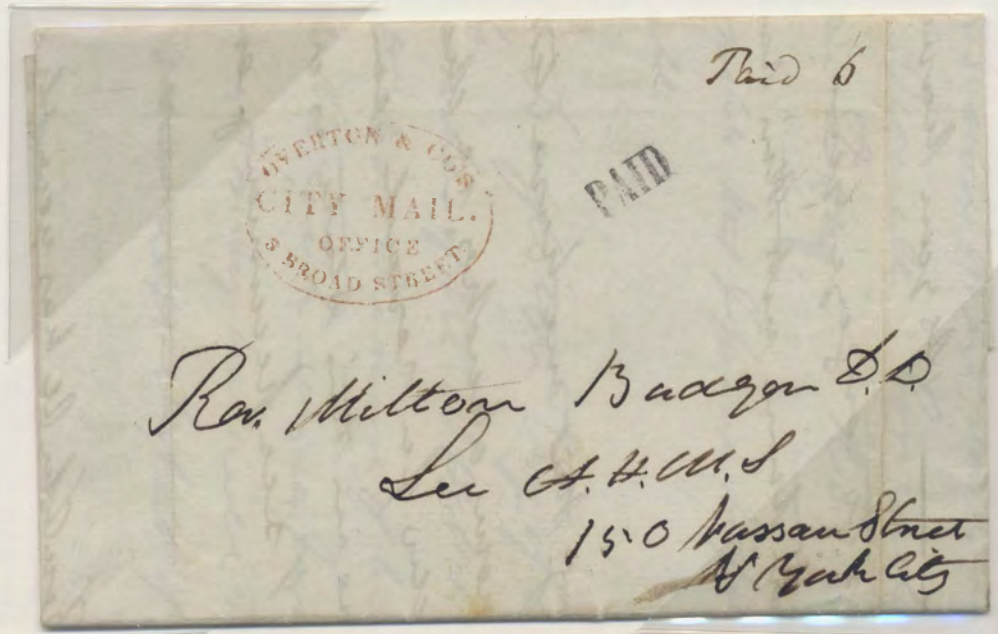 Paid 6
PAID
OVERTON & CO'S
CITY MAIL.
OFFICE
3 BROAD STREET.
Rev. Milton Badger D.D.
Sec A.H.M.S
150 Nassau Street
N York City